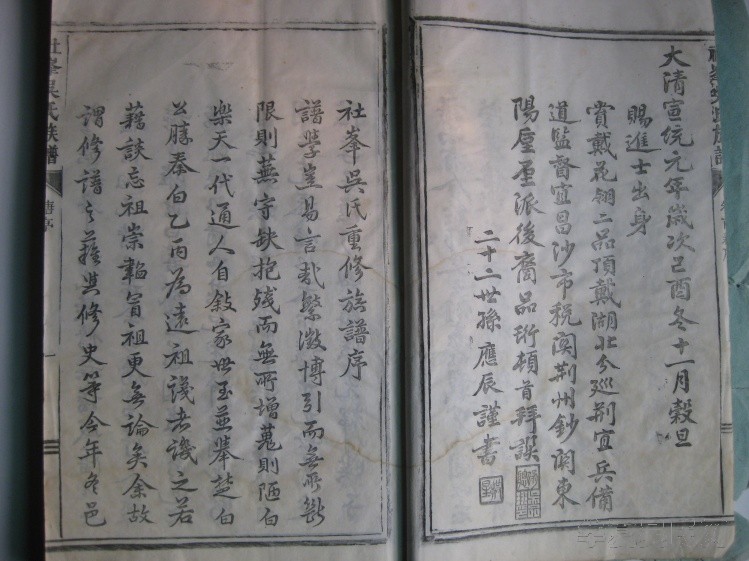 大清宣統元年歲次己酉冬十一月穀旦
賜進士出身
賞戴花翎二品頂戴湖北分巡荆宜兵備
道監督宜昌沙市稅關荆州鈔關東
陽廛里派後裔品珩頓首拜譔
二十二世孫應辰謹書
社峯吳氏重修族譜序
譜學豈易言哉繁徵博引而無所斷
限則蕪守缺抱殘而無所增蒐則陋白
樂天一代通人自敍家世至並舉楚白
公勝秦白乙丙為遠祖譏者譏之若
藉談忘祖崇韜冒祖更無論矣余故
謂修譜之難與修史等今年冬邑
社峯吳氏族譜
舊序